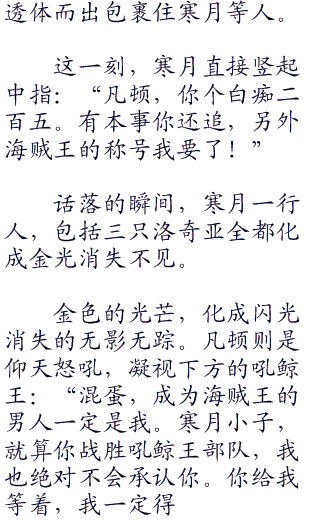 透体而出包裹住寒月等人。
这一刻，寒月直接竖起
中指：“凡顿，你个白痴二
百五。有本事你还追，另外
海贼王的称号我要了！”
话落的瞬间，寒月一行
人，包括三只洛奇亚全都化
成金光消失不见。
金色的光芒，化成闪光
消失的无影无踪。凡顿则是
仰天怒吼，凝视下方的吼鲸
王：“混蛋，成为海贼王的
男人一定是我。寒月小子，
就算你战胜吼鲸王部队，我
也绝对不会承认你。你给我
等着，我一定得